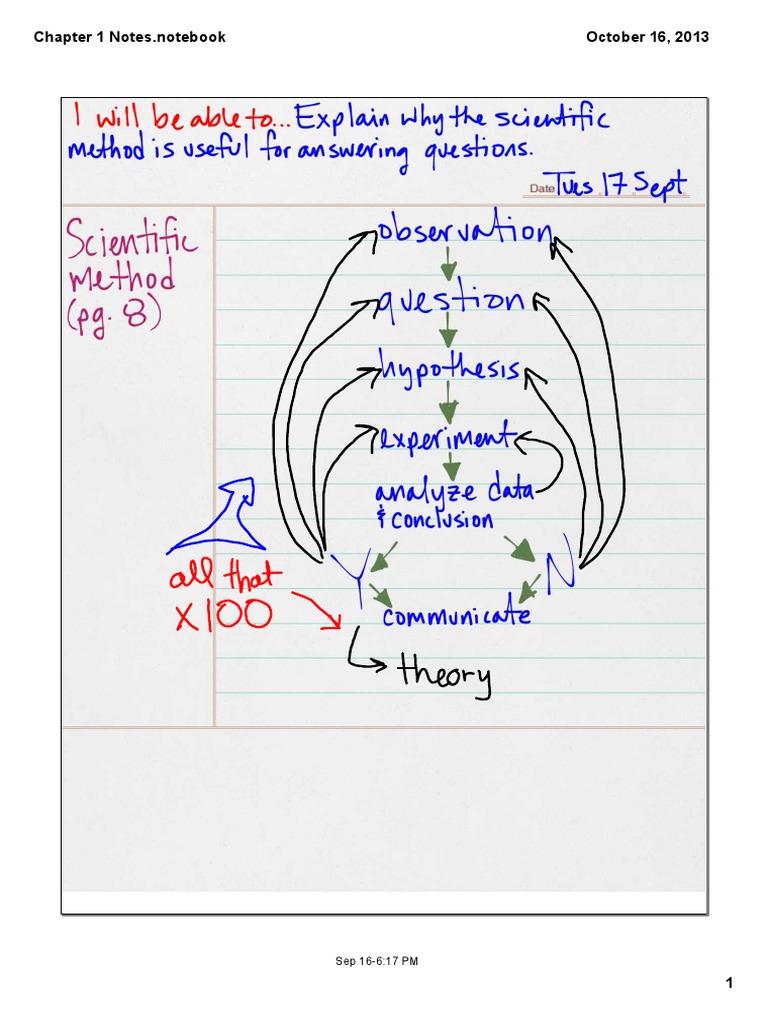 Chapter 1 Notes.notebook
October 16, 2013
I will be able to... Explain why the scientific
method is useful for answering questions.
Date Tues 17 Sept
Scientific
method
(pg. 8)
observation
question
hypothesis
experiment
analyze data
& conclusion
Y N
all that
x100
communicate
theory
Sep 16-6:17 PM
1